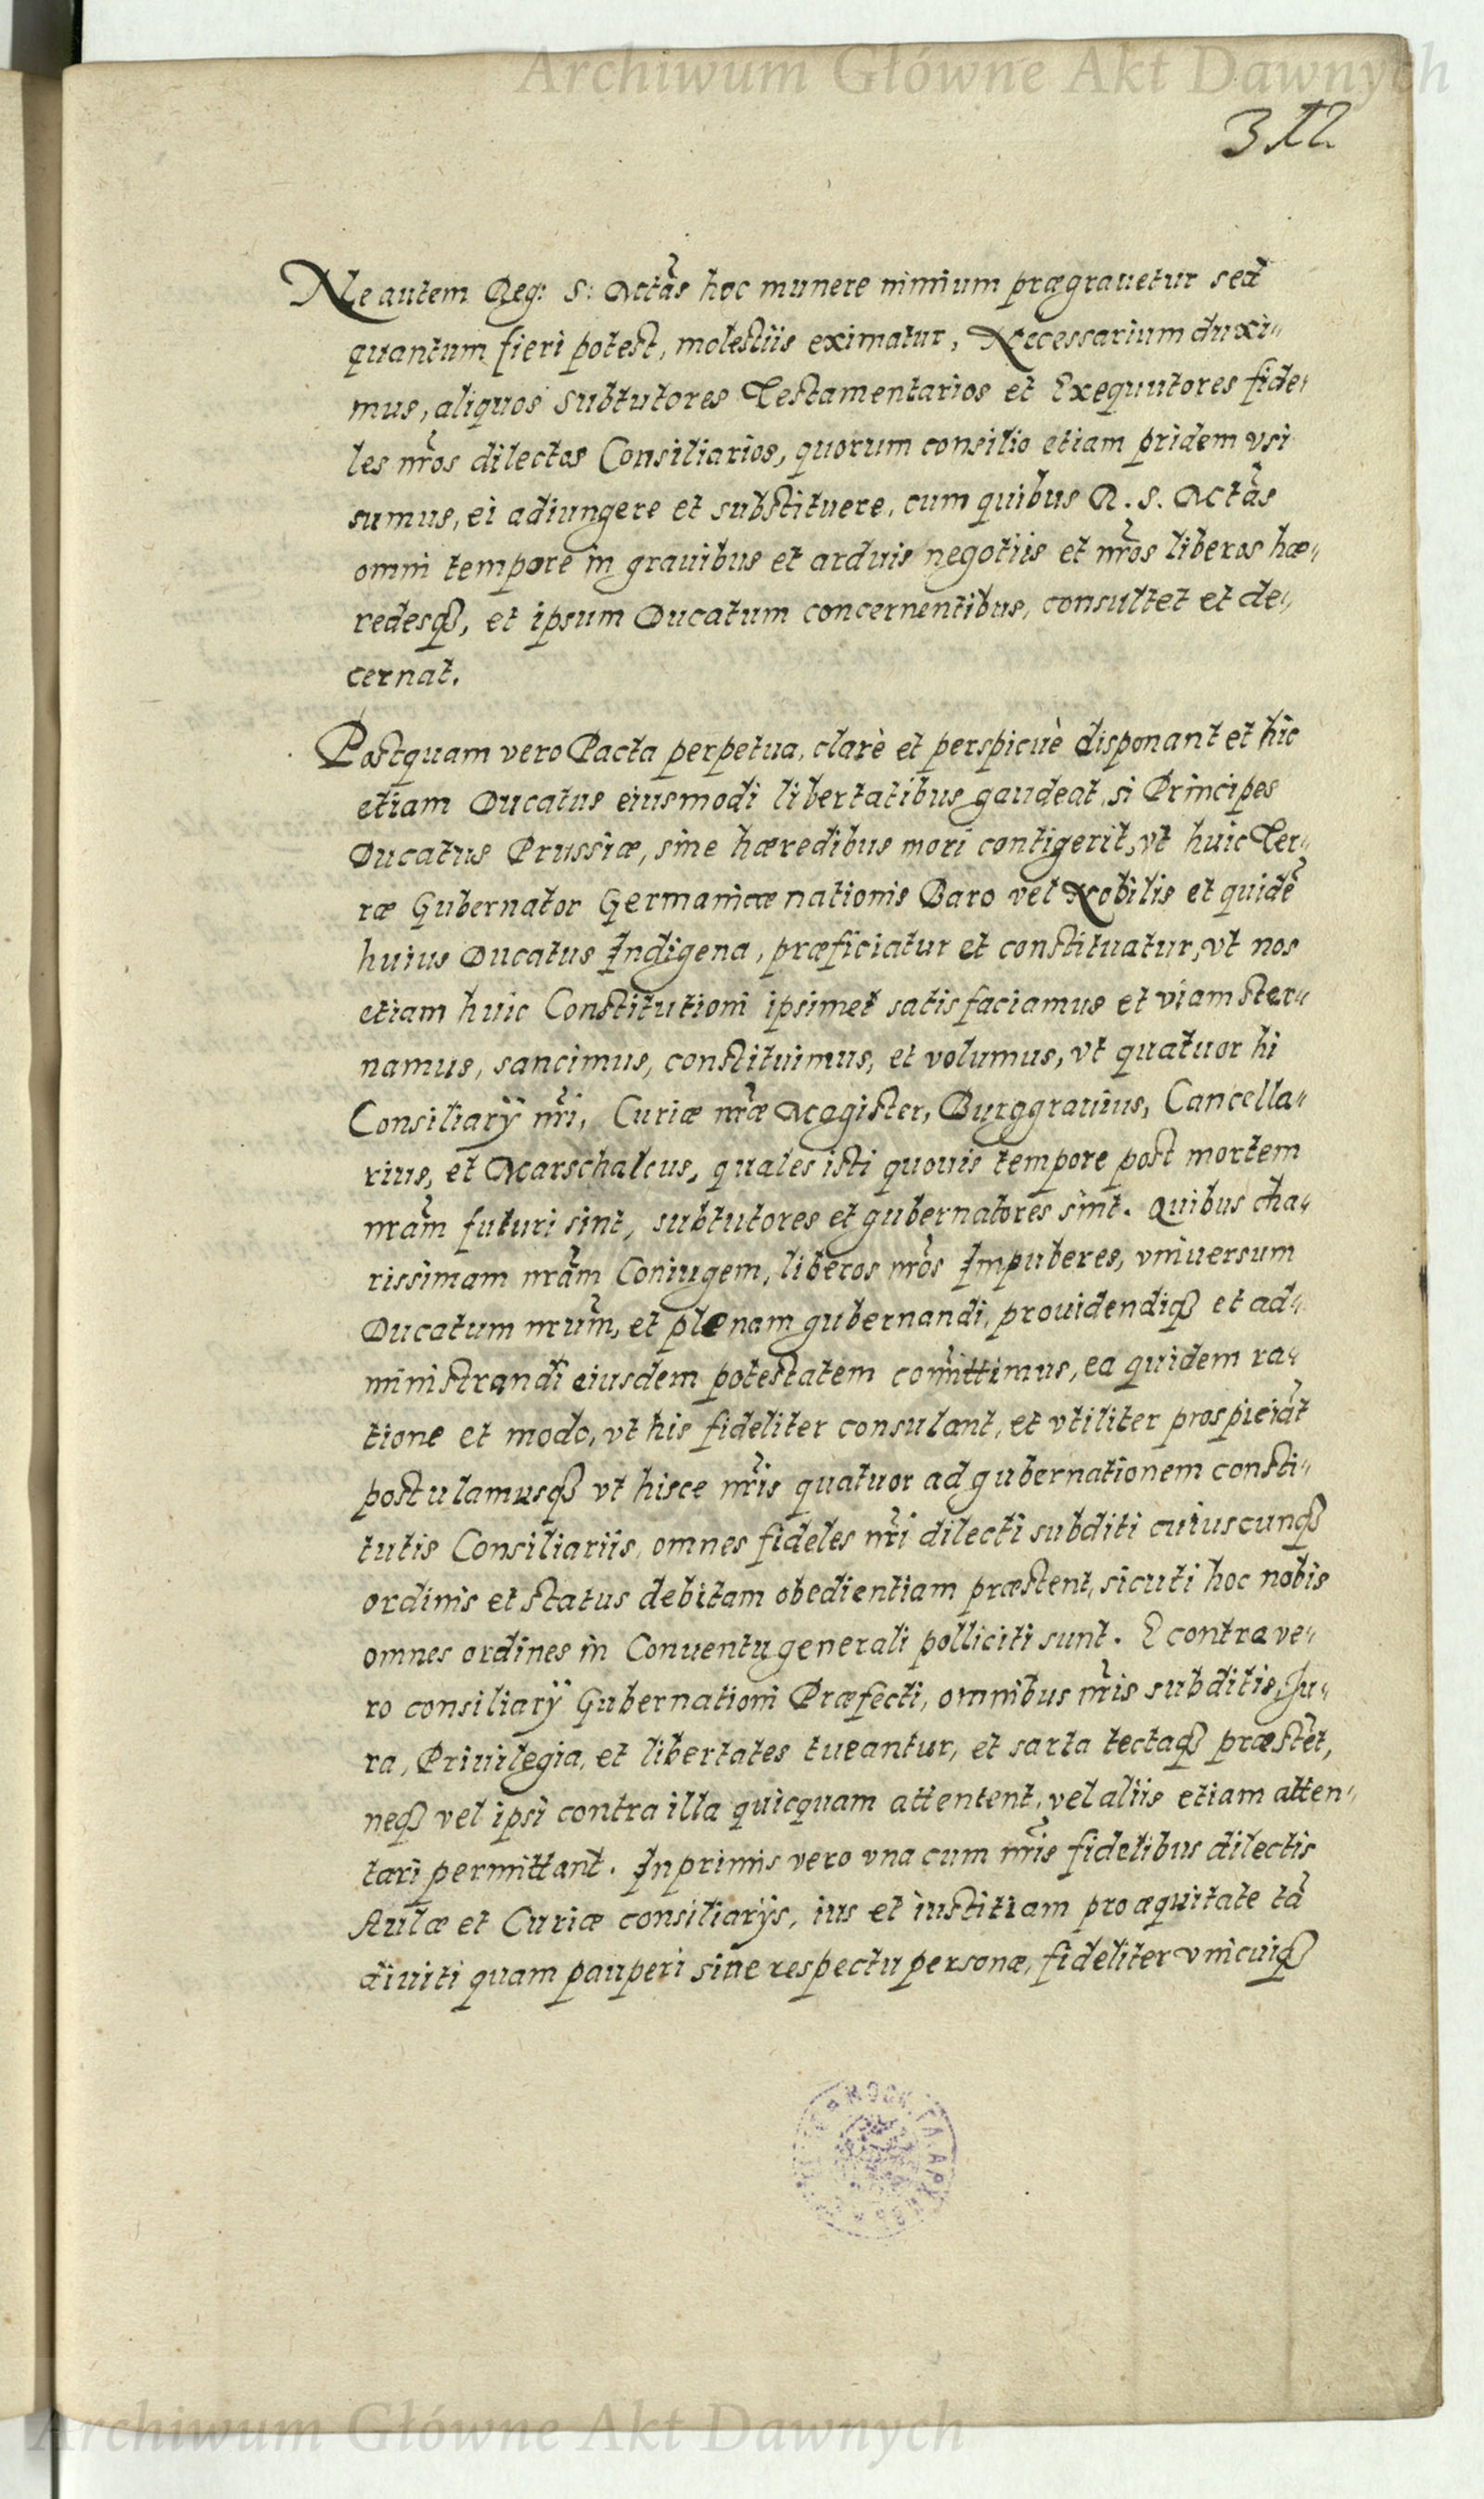 Archiwum Główne Akt Dawnych
312
Ne autem Reg: S: Mctas̃ hoc munere nimium prægrauetur sed
quantum fieri potest, molestiis eximatur, Necessarium duxi„
mus, aliquos Subtutores Testamentarios et Exequutores fide„
les nr̃os dilectos Consiliarios, quorum consilio etiam pridem vsi
sumus, ei adiungere et substituere, cum quibus R. S. Mctas̃
omni tempore in grauibus et arduis negotiis et nr̃os liberos hæ„
redesq̃, et ipsum Ducatum concernentibus, consultet et de„
cernat.
Postquam vero Pacta perpetua, clarè et perspicuè disponant et hic
etiam Ducatus eiusmodi libertatibus gaudeat, si Principes
Ducatus Prussiæ, sine hæredibus mori contigerit, vt huic Ter„
ræ Gubernator Germanicæ nationis Baro vel Nobilis et quidẽ
huius Ducatus Indigena, præficiatur et constituatur, vt nos
etiam huic Constitutioni ipsimet satis faciamus et viam ster„
namus, sancimus, constituimus, et volumus, vt quatuor hi
Consiliarÿ nr̃i, Curiæ nr̃æ Magister, Burggrauius, Cancella„
rius, et Marschalcus, quales isti quouis tempore post mortem
nrãm futuri sint, subtutores et gubernatores sint. Quibus cha„
rissimam nrãm Coniugem, liberos nr̃os Impuberes, vniuersum
Ducatum nrũm, et plenam gubernandi, prouidendiq̃ et ad„
ministrandi eiusdem potestatem com̃ittimus, ea quidem ra„
tione et modo, vt his fideliter consulant, et vtiliter prospiciãt
postulamusq̃ vt hisce nr̃is quatuor ad gubernationem consti„
tutis Consiliariis, omnes fideles nr̃i dilecti subditi cuiuscunq̃
ordinis et status debitam obedientiam præstent, sicuti hoc nobis
omnes ordines in Conuentu generali polliciti sunt. E contra ve„
ro consiliarÿ Gubernationi Præfecti, omnibus nr̃is subditis, Ju„
ra, Priuilegia, et libertates tueantur, et sarta tectaq̃ præstẽt,
neq̃ vel ipsi contra illa quicquam attentent, vel aliis etiam atten„
tari permittant. Inprimis vero vna cum nr̃is fidelibus dilectis
Aulæ et Curiæ consiliarÿs, ius et iustitiam pro æquitate tã
diuiti quam pauperi sine respectu personæ, fideliter vnicuiq̃
Archiwum Główne Akt Dawnych